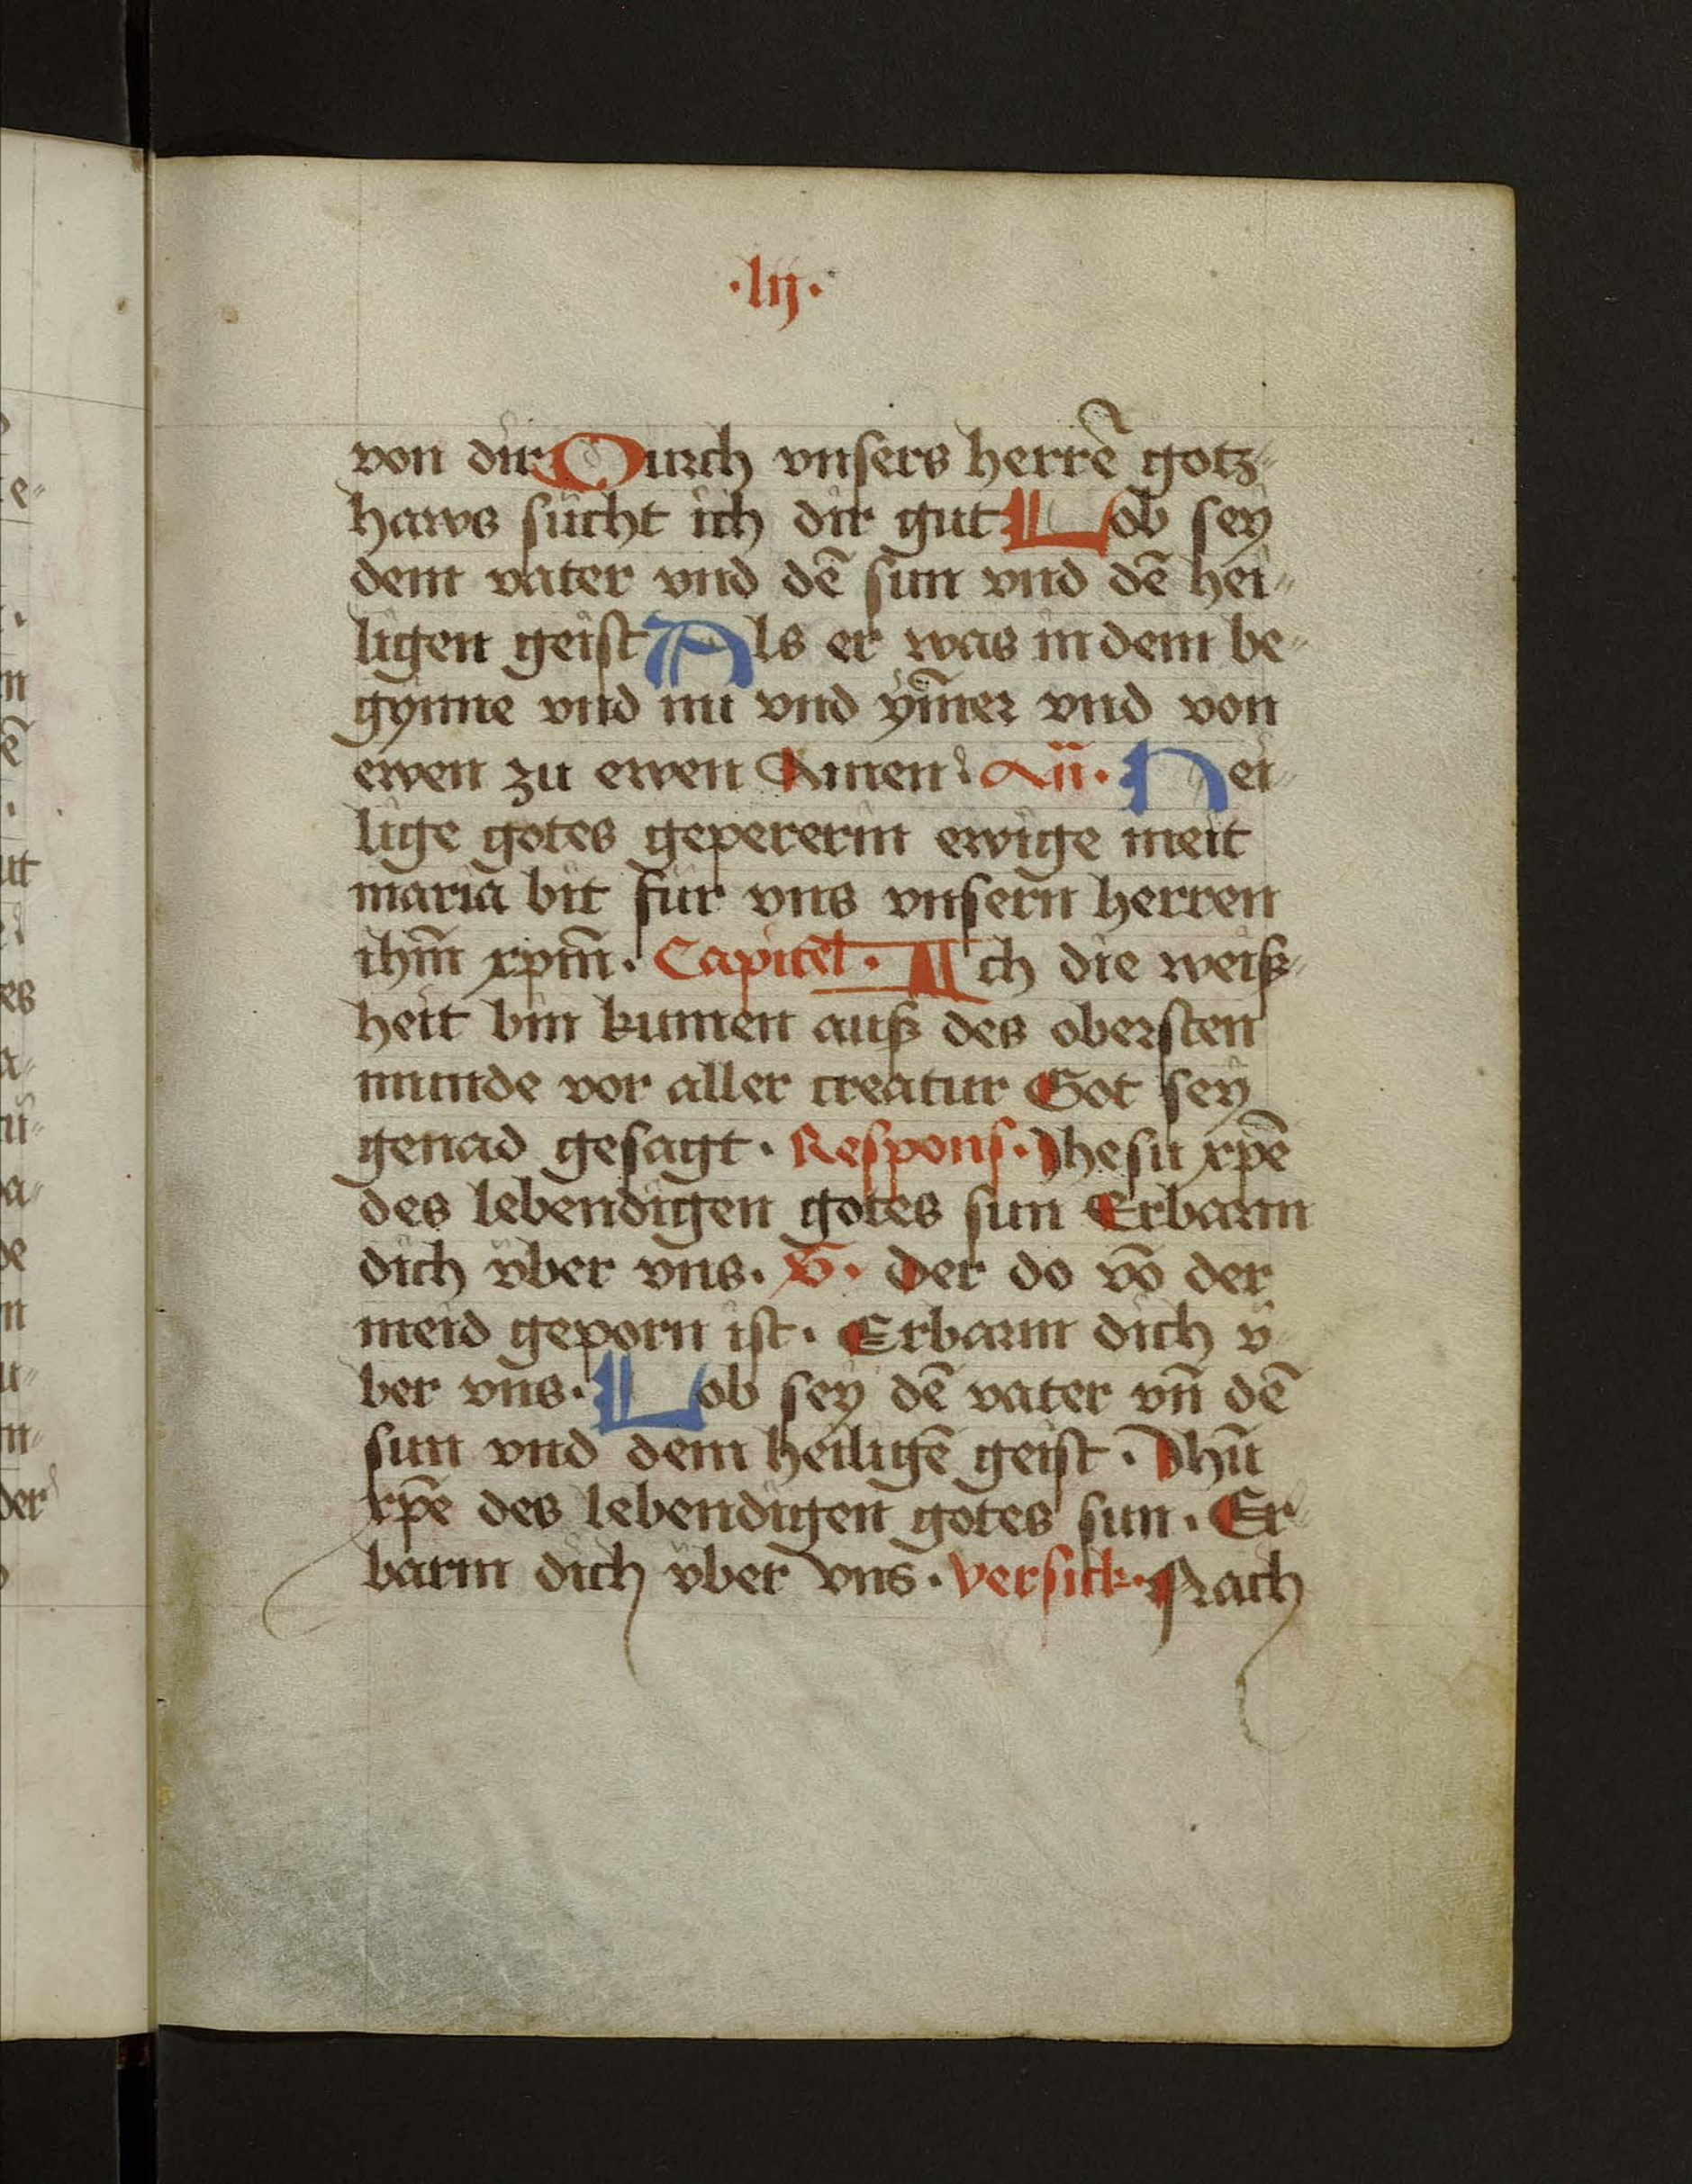 ·lij·
von dir Durch vnsers herrē gotz-
haws sücht ich dir gut Lob sey
dem vater vnd dē sun vnd dē hei-
ligen geist Als er was in dem be-
gynne vnd nu vnd ym̄er vnd von
ewen zu ewen Amen An̄. Hei-
lige gotes gepererin ewige meit
maria bit für vns vnsern herren
ihm̄ xpm̄. Capitel. Ich die weiß-
heit bin kumen auß des obersten
munde vor aller creatur Got sey
genad gesagt. Respons. Jhesu xpē
des lebendigen gotes sun Erbarm
dich vber vns. V. Der do vō der
meid geporn ist. Erbarm dich v-
ber vns. Lob sey dē vater vn̄ dē
sun vnd dem heiligē geist. Jhū
xpē des lebendigen gotes sun. Er-
barm dich vber vns. versick. Nach